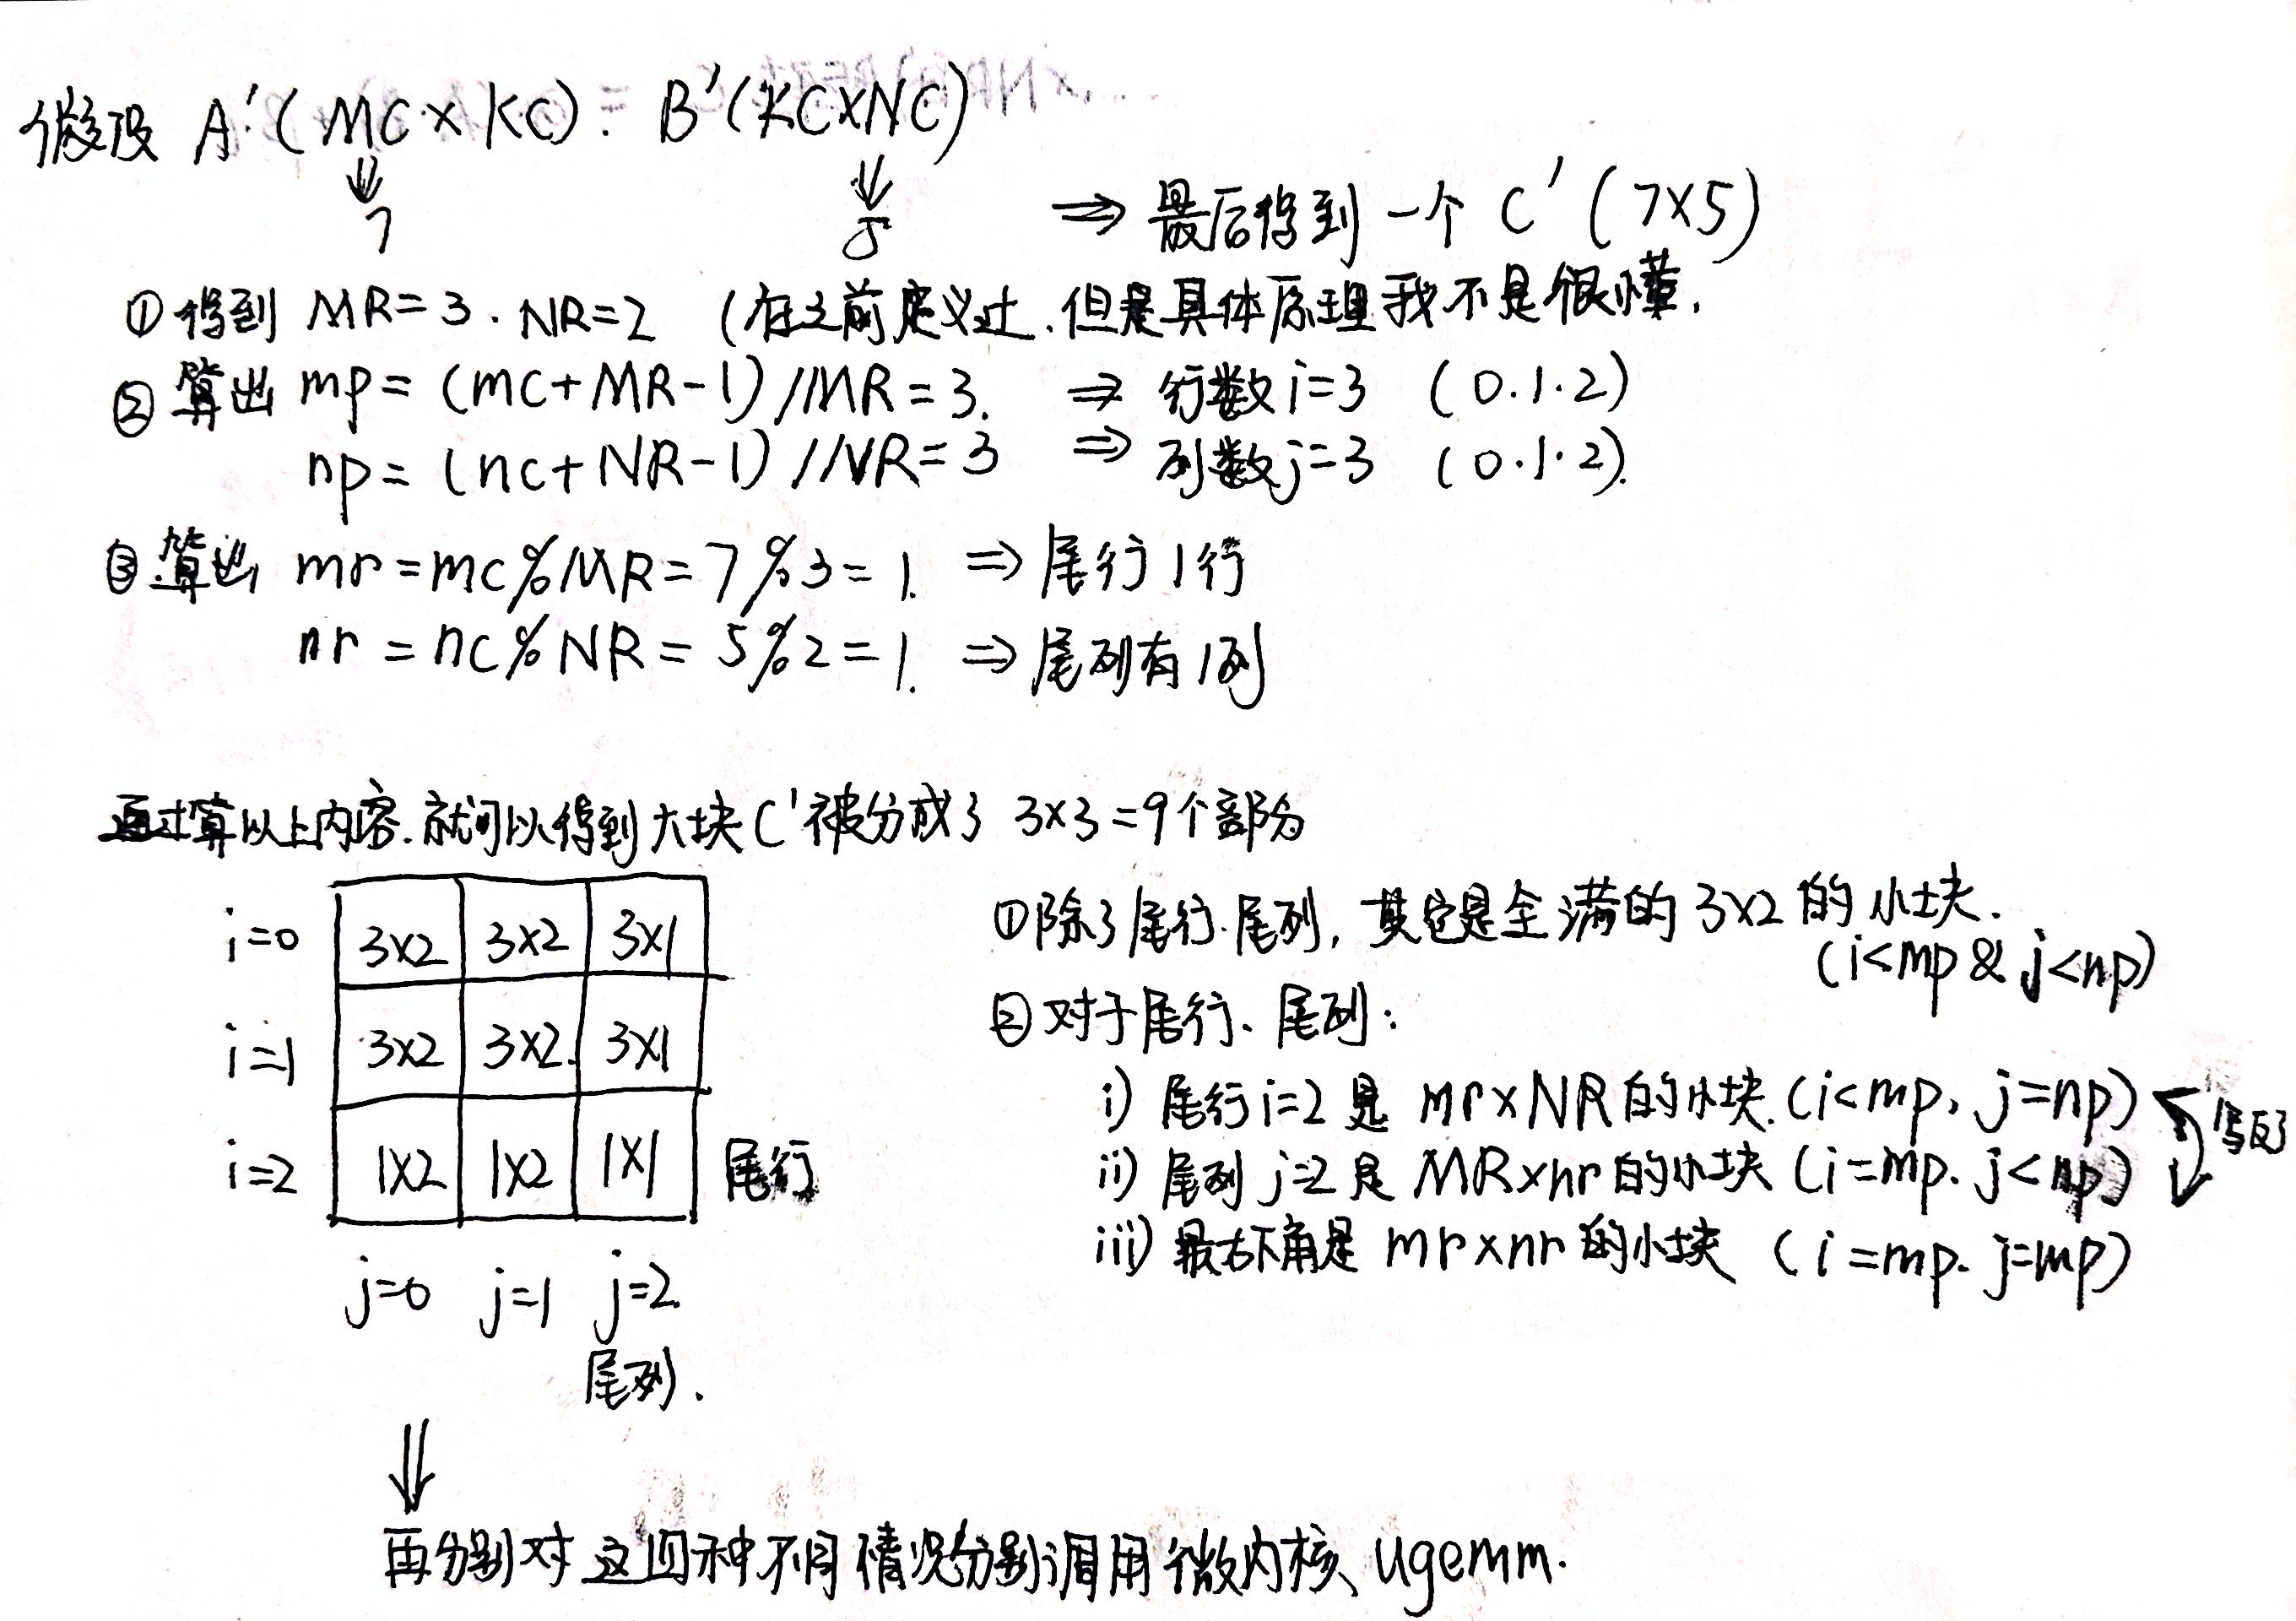 假设 A'(MC×KC). B'(KC×NC)
⇓ ⇓
7 5 ⇒ 最后得到一个 C' (7×5)
①得到 MR=3. NR=2 (在之前定义过.但是具体原理我不是很懂.
②算出 mp=(mc+MR-1)//MR=3. ⇒ 行数i=3 (0.1.2)
np=(nc+NR-1)//NR=3 ⇒ 列数j=3 (0.1.2).
③算出 mr=mc%MR=7%3=1. ⇒ 尾行1行
nr=nc%NR=5%2=1. ⇒ 尾列有1列
通过算以上内容.就可以得到大块C'被分成了 3×3=9个部分
i=0 3×2 3×2 3×1
i=1 3×2 3×2. 3×1
i=2 1×2 1×2 1×1 尾行
j=0 j=1 j=2
尾列.
①除了尾行.尾列, 其它是全满的3×2的小块.
(i<mp & j<np)
②对于尾行、尾列:
i) 尾行i=2是 mr×NR的小块.(i<mp, j=np) 写反了
ii) 尾列j=2是 MR×nr的小块 (i=mp. j<np)
iii) 最右下角是 mr×nr的小块 (i=mp. j=mp)
⇓
再分别对这四种不同情况分别调用微内核 ugemm.